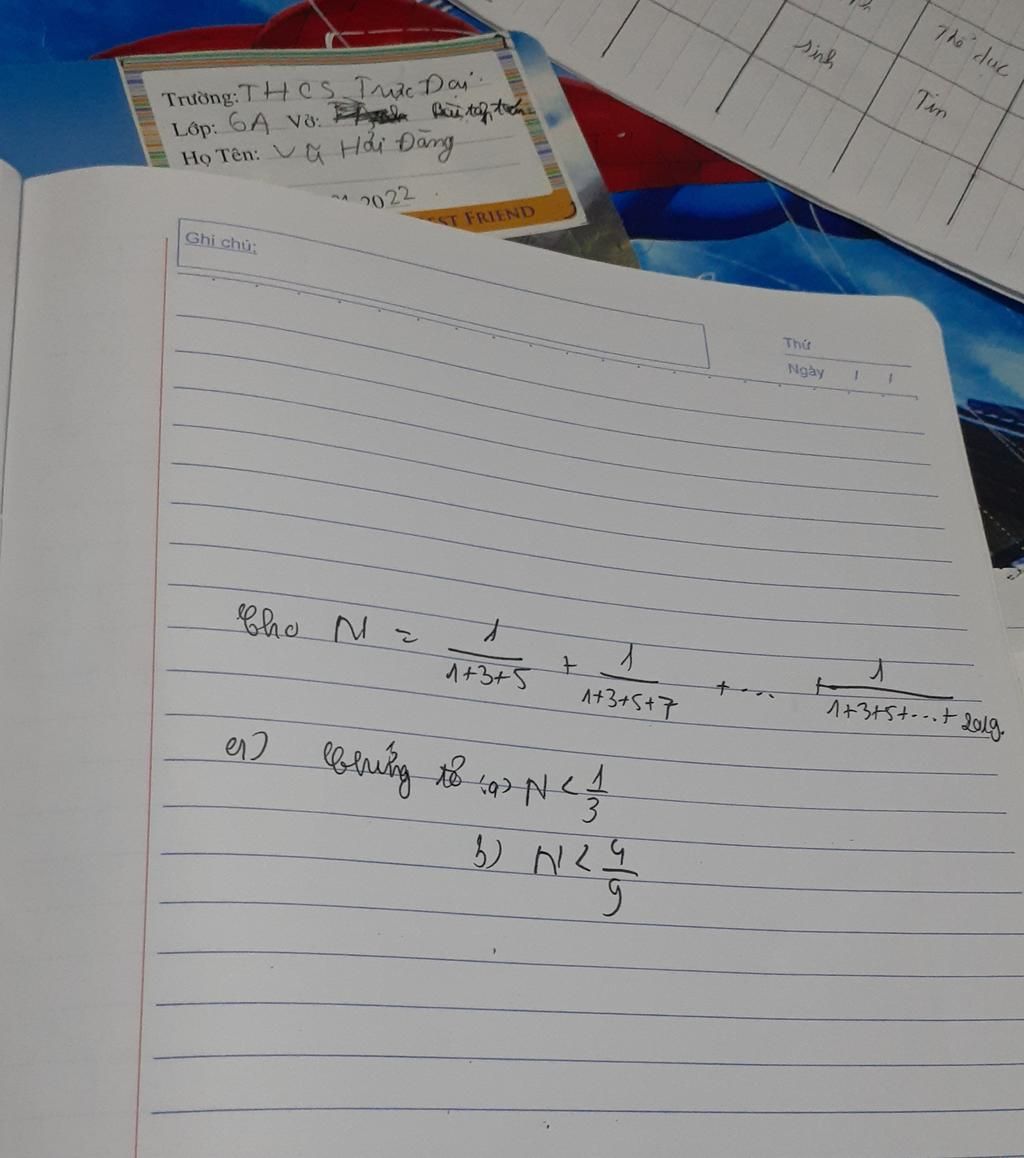 Trường: THCS Trực Đại
Lớp: 6A Vở: Bài tập toán
Họ Tên: Vũ Hải Đăng
2022
EST FRIEND
Sinh
Thể dục
Tin
Ghi chú:
Thứ
Ngày / /
Cho N = 1/(1+3+5) + 1/(1+3+5+7) + ... + 1/(1+3+5+...+2019.)
a) Chứng tỏ : a) N < 1/3
b) N < 4/9